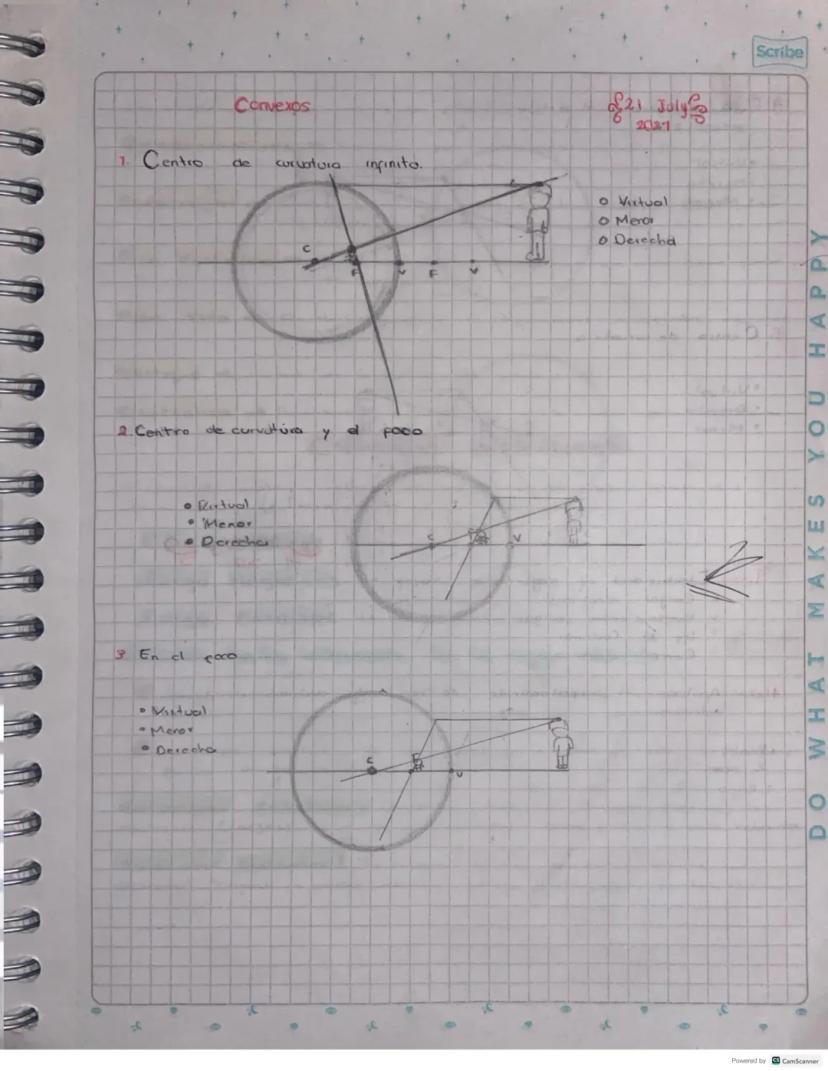 Scribe
Convexos
21 July
2021
1. Centro de curvatura infinito.
o Virtual
o Menor
o Derecha
C
F
V
F
V
2. Centro de curvatura y el foco
• Virtual
• Menor
• Derecha
C
V
3 En el foco
• Virtual
• Menor
• Derecha
C
F
V
DO WHAT MAKES YOU HAPPY
Powered by CS CamScanner